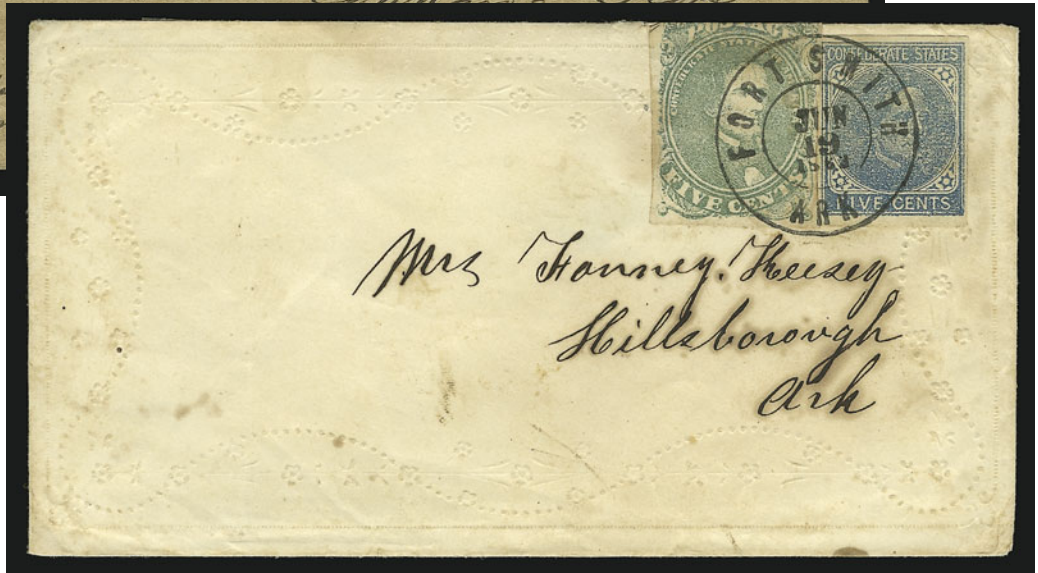 POSTAGE
CONFEDERATE STATES
FIVE CENTS
CONFEDERATE STATES
FIVE CENTS
FORT SMITH
JUN
19
ARK
Mrs Fanney. Keesey
Hillsborough
Ark